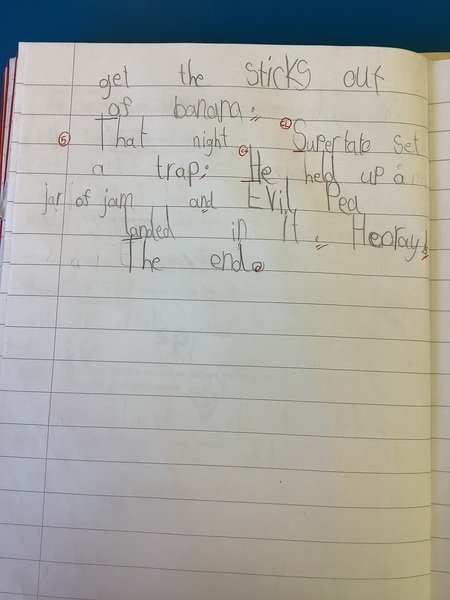 get the sticks out
of banana.
That night Supertato set
a trap. He held up a
jar of jam and Evil Pea
landed in it. Hooray!
The end.